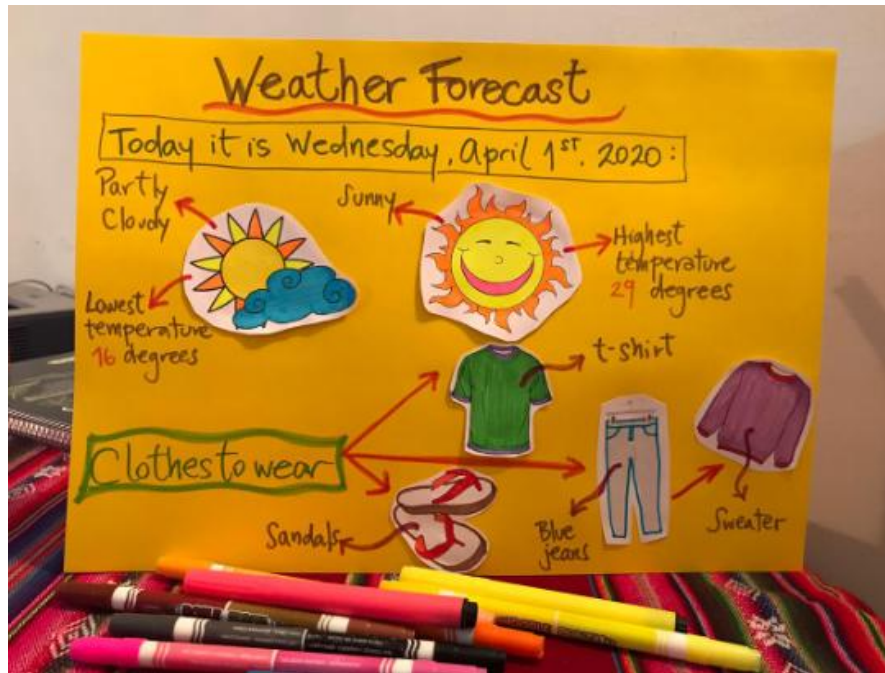 Weather Forecast
Today it is Wednesday, April 1ST, 2020:
Partly
Cloudy
Sunny
Highest
temperature
29 degrees
Lowest
temperature
16 degrees
t-shirt
Clothes to wear
Sandals
Blue
jeans
Sweater